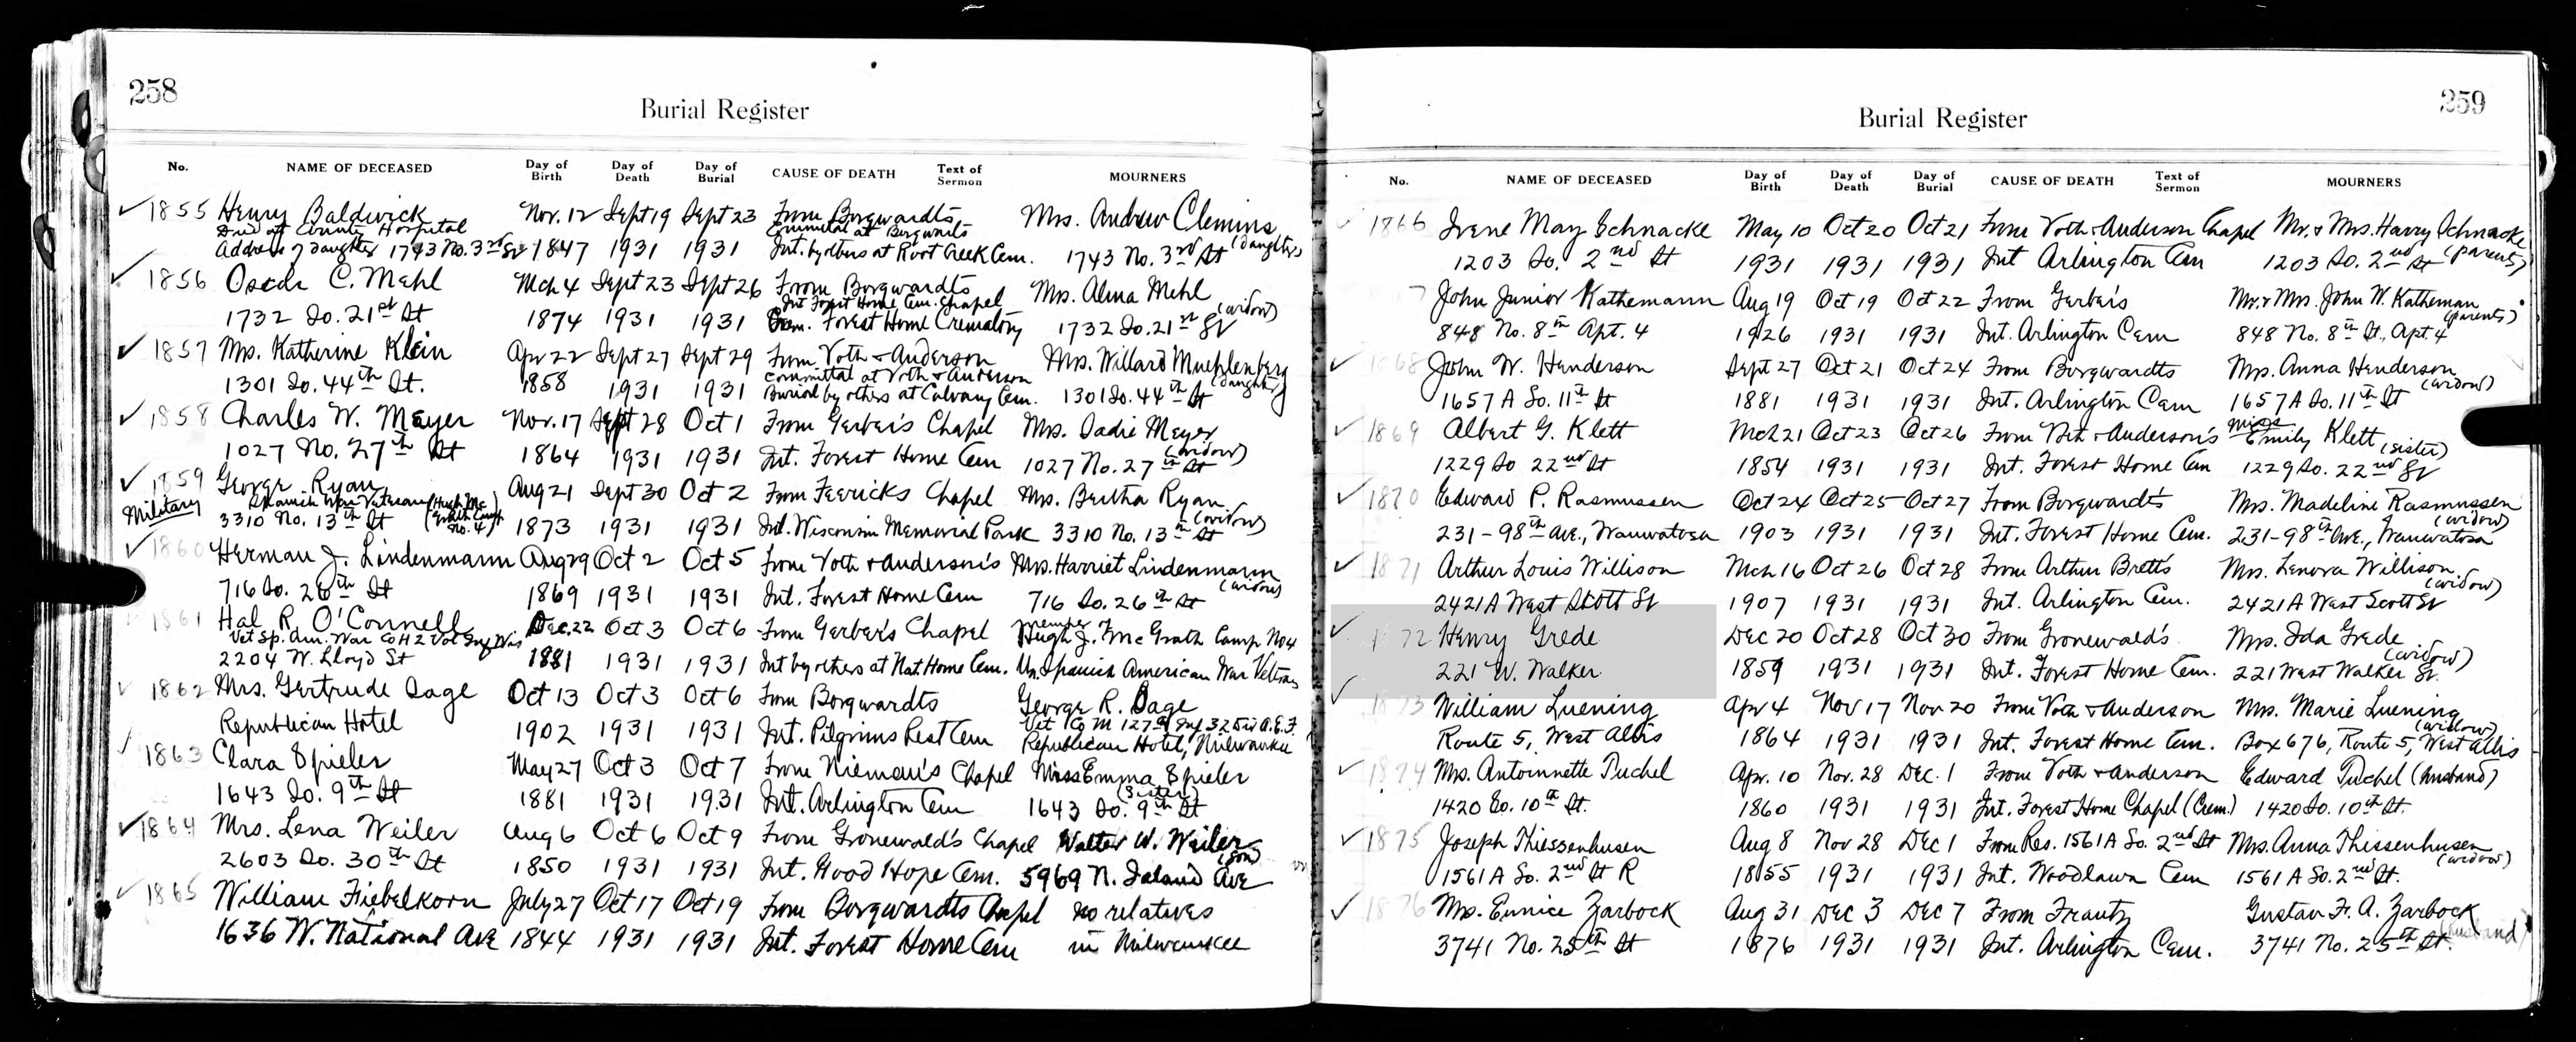 258
Burial Register
No. NAME OF DECEASED Day of Birth Day of Death Day of Burial CAUSE OF DEATH Text of Sermon MOURNERS
1855 Henry Baldwick Nov. 12 Sept 19 Sept 23 From Borgwardts Mrs. Andrew Clemins
Died at County Hospital Committal at Borgwardts
Address of Daughter 1743 No. 3rd St 1847 1931 1931 Int. by others at Root Creek Cem. 1743 No. 3rd St (daughter)
1856 Oscar C. Mehl Mch 4 Sept 23 Sept 26 From Borgwardts Mrs. Alma Mehl
Int Forest Home Cem. Chapel (widow)
1732 So. 21st St 1874 1931 1931 Crem. Forest Home Crematory 1732 So. 21st St
1857 Mrs. Katherine Klein Apr 22 Sept 27 Sept 29 From Voth & Anderson Mrs. Willard Muehlenberg
Committal at Voth & Anderson (daughter)
1301 So. 44th St. 1858 1931 1931 Burial by others at Calvary Cem. 1301 So. 44th St
1858 Charles W. Meyer Nov. 17 Sept 28 Oct 1 From Gerber's Chapel Mrs. Sadie Meyer
1027 No. 27th St 1864 1931 1931 Int. Forest Home Cem 1027 No. 27th St (widow)
1859 George Ryan Aug 21 Sept 30 Oct 2 From Feerick's Chapel Mrs. Bertha Ryan
Military Spanish War Veteran (Hugh Mc Grath Camp No. 4)
3310 No. 13th St 1873 1931 1931 Int. Wisconsin Memorial Park 3310 No. 13th St (widow)
1860 Herman J. Lindenmann Aug 29 Oct 2 Oct 5 From Voth & Anderson's Mrs. Harriet Lindenmann
716 So. 26th St 1869 1931 1931 Int. Forest Home Cem 716 So. 26th St (widow)
1861 Hal R. O'Connell Dec. 22 Oct 3 Oct 6 From Gerber's Chapel Member of Hugh J. Mc Grath Camp No 4
Vet Sp. Am. War Co H 2 Vol Inf Wis
2204 W. Lloyd St 1881 1931 1931 Int by others at Nat. Home Cem. Un. Spanish American War Veterans
1862 Mrs. Gertrude Sage Oct 13 Oct 3 Oct 6 From Borgwardts George R. Sage
Vet Co M 127th Inf 32 Div A.E.F.
Republican Hotel 1902 1931 1931 Int. Pilgrims Rest Cem Republican Hotel, Milwaukee
1863 Clara Spieler May 27 Oct 3 Oct 7 From Nieman's Chapel Miss Emma Spieler
1643 So. 9th St 1881 1931 1931 Int. Arlington Cem 1643 So. 9th St (Sister)
1864 Mrs. Lena Weiler Aug 6 Oct 6 Oct 9 From Gronewald's Chapel Walter W. Weiler
2603 So. 30th St 1850 1931 1931 Int. Good Hope Cem. 5969 N. Ave (son)
1865 William Fiebelkorn July 27 Oct 17 Oct 19 From Borgwardts Chapel no relatives
1636 W. National Ave 1844 1931 1931 Int. Forest Home Cem in Milwaukee
259
Burial Register
No. NAME OF DECEASED Day of Birth Day of Death Day of Burial CAUSE OF DEATH Text of Sermon MOURNERS
1866 Irene May Schnacke May 10 Oct 20 Oct 21 From Voth & Anderson Chapel Mr. & Mrs. Harry Schnacke
1203 So. 2nd St 1931 1931 1931 Int Arlington Cem 1203 So. 2nd St (parents)
7 John Junior Kathemann Aug 19 Oct 19 Oct 22 From Gerber's Mr. & Mrs. John W. Katheman
848 No. 8th Apt. 4 1926 1931 1931 Int. Arlington Cem 848 No. 8th St., Apt. 4 (parents)
1868 John W. Henderson Sept 27 Oct 21 Oct 24 From Borgwardts Mrs. Anna Henderson
1657 A So. 11th St 1881 1931 1931 Int. Arlington Cem 1657 A So. 11th St (widow)
1869 Albert G. Klett Mch 21 Oct 23 Oct 26 From Voth & Anderson's Miss Emily Klett
1229 So 22nd St 1854 1931 1931 Int. Forest Home Cem 1229 So. 22nd St (sister)
1870 Edward P. Rasmussen Oct 24 Oct 25 Oct 27 From Borgwardt's Mrs. Madeline Rasmussen
231-98th Ave., Wauwatosa 1903 1931 1931 Int. Forest Home Cem. 231-98th Ave., Wauwatosa (widow)
1871 Arthur Louis Willison Mch 16 Oct 26 Oct 28 From Arthur Brett's Mrs. Lenora Willison
2421A West Scott St 1907 1931 1931 Int. Arlington Cem. 2421A West Scott St (widow)
1872 Henry Grede Dec 20 Oct 28 Oct 30 From Gronewald's Mrs. Ida Grede
221 W. Walker 1859 1931 1931 Int. Forest Home Cem. 221 West Walker St. (widow)
1873 William Luening Apr 4 Nov 17 Nov 20 From Voth & Anderson Mrs. Marie Luening
Route 5, West Allis 1864 1931 1931 Int. Forest Home Cem. Box 676, Route 5, West Allis (widow)
1874 Mrs. Antoinnette Puchel Apr. 10 Nov. 28 Dec. 1 From Voth & Anderson Edward Puchel (husband)
1420 So. 10th St. 1860 1931 1931 Int. Forest Home Chapel (Crem.) 1420 So. 10th St.
1875 Joseph Thiessenhusen Aug 8 Nov 28 Dec 1 From Res. 1561A So. 2nd St Mrs. Anna Thissenhusen
1561A So. 2nd St R 1855 1931 1931 Int. Woodlawn Cem 1561 A So. 2nd St. (widow)
1876 Mrs. Eunice Zarbock Aug 31 Dec 3 Dec 7 From Frantz Gustav F. A. Zarbock
3741 No. 25th St 1876 1931 1931 Int. Arlington Cem. 3741 No. 25th St. (husband)